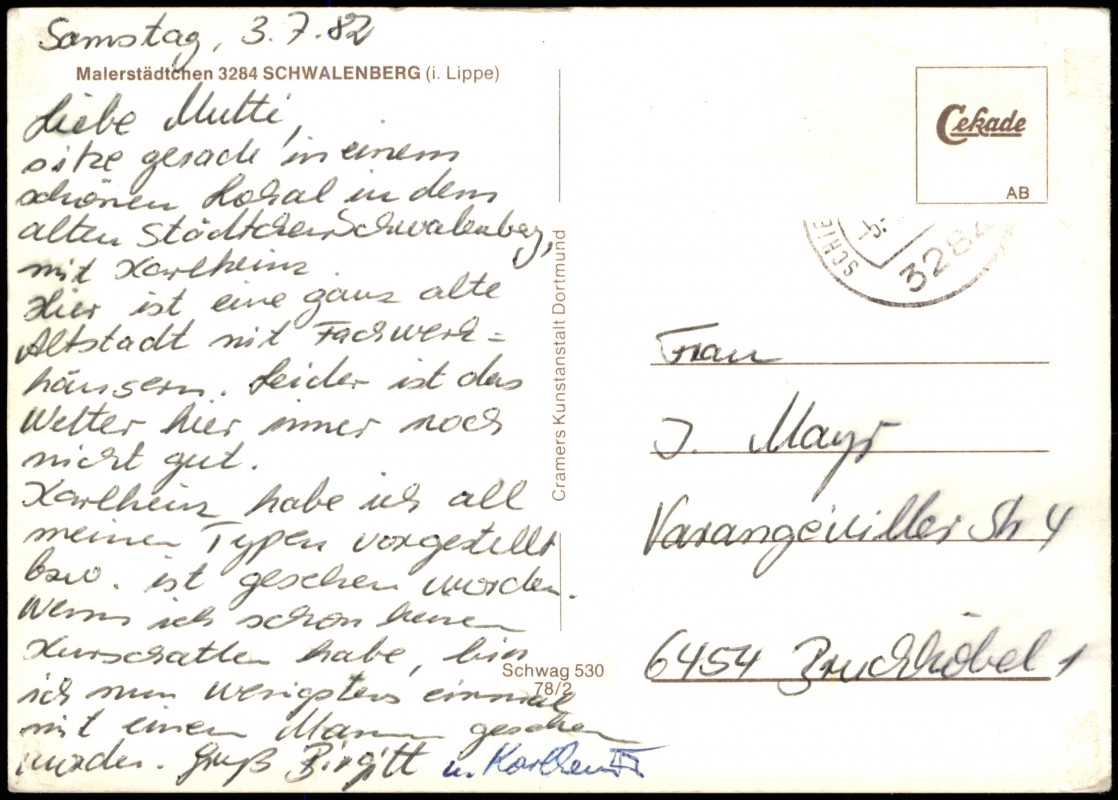 Samstag, 3.7.82
Malerstädtchen 3284 SCHWALENBERG (i. Lippe)
Liebe Mutti,
sitze gerade in einem
schönen Lokal in dem
alten Städtchen Schwalenberg,
mit Karlheinz.
Hier ist eine ganz alte
Altstadt mit Fachwerk=
häusern. Leider ist das
Wetter hier immer noch
nicht gut.
Karlheinz habe ich all
meinen Typen vorgestellt
bzw. ist gesehen worden.
Wenn ich schon keinen
Kurschatten habe, bin
ich nun wenigstens einmal
mit einem Mann gesehen
worden. Gruß Birgitt u. Karlheinz
Cramers Kunstanstalt Dortmund
Schwag 530
78/2
Cekade
AB
SCHIE
3284
Frau
J. Mayr
Varangéviller Str 4
6454 Bruchköbel 1